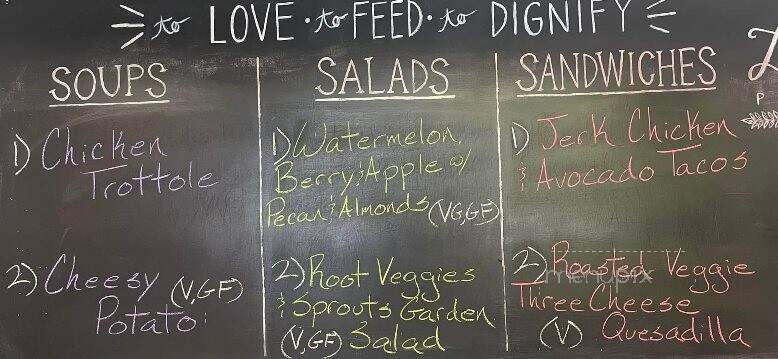 to LOVE · to FEED · to DIGNIFY
SOUPS
1) Chicken
Trottole
2) Cheesy (V,GF)
Potato
SALADS
1) Watermelon,
Berry & Apple w/
Pecan & Almonds (VG,GF)
2) Root Veggies
& Sprouts Garden
(V,GF) Salad
SANDWICHES
1) Jerk Chicken
& Avocado Tacos
2) Roasted Veggie
Three Cheese
(V) Quesadilla
menupix